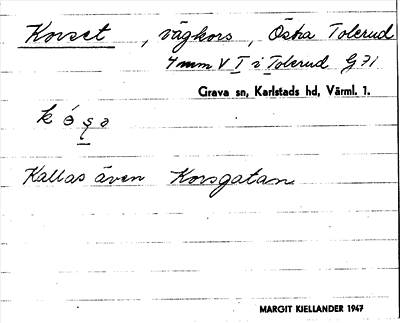 Korset, vägkors, Östra Tolerud
4 mm V I i Tolerud G 71
Grava sn, Karlstads hd, Värml. 1.
Kallas även Korsgatan
MARGIT KJELLANDER 1947